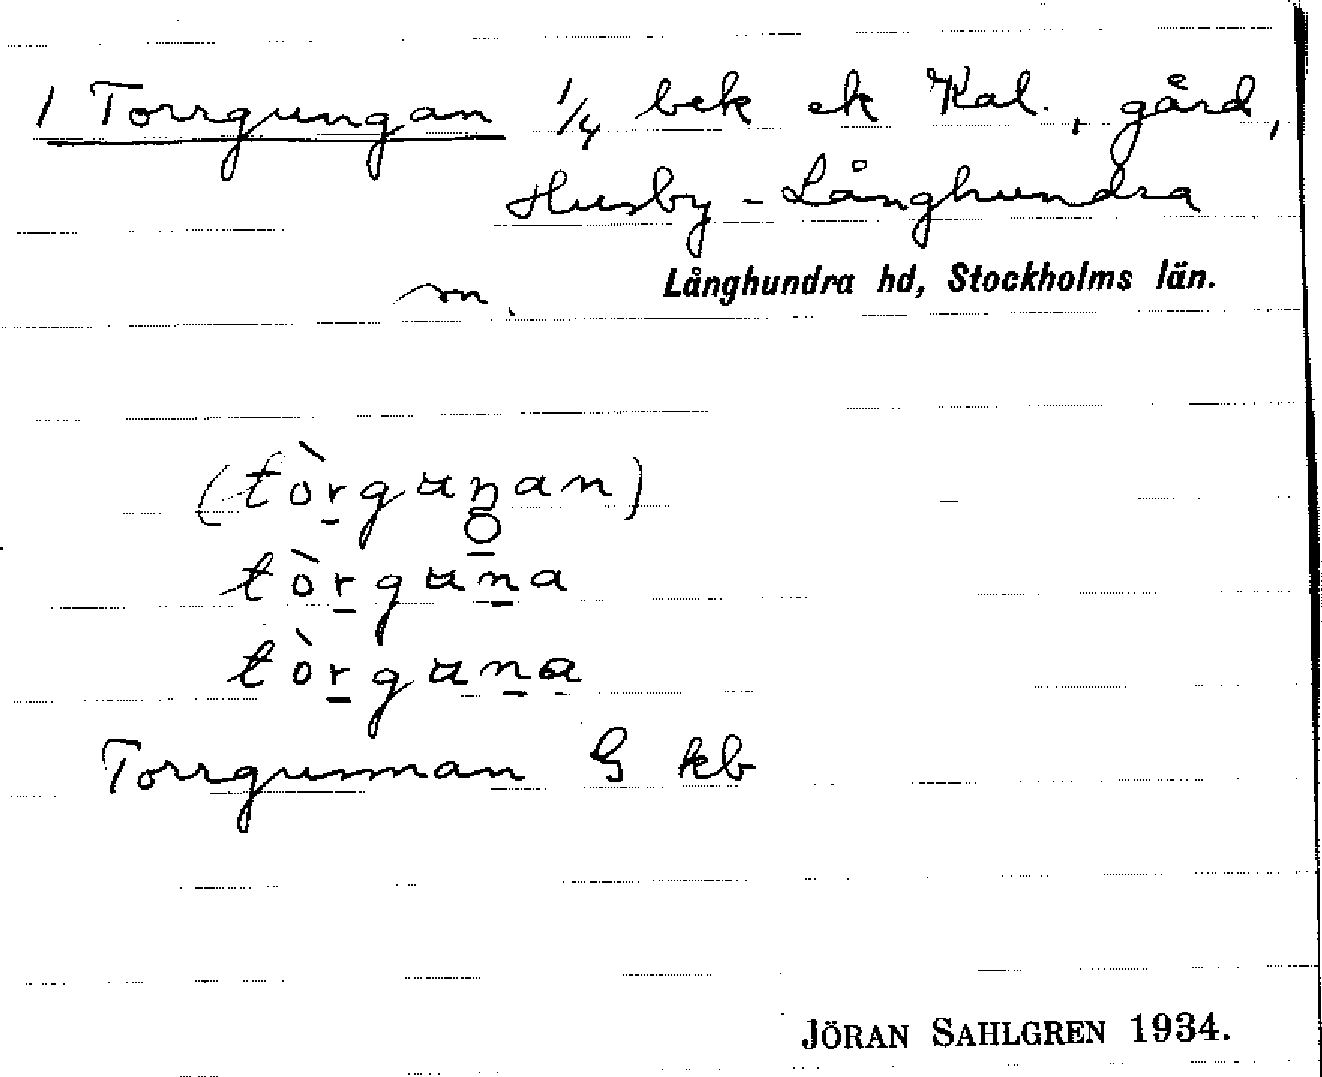 1 Torrgungan 1/4 bek ek Kal., gård,
Husby-Långhundra
sn.
Långhundra hd, Stockholms län.
(tòrgunan)
tòrguna
tòrguna
Torrgunnan G kb
JÖRAN SAHLGREN 1934.